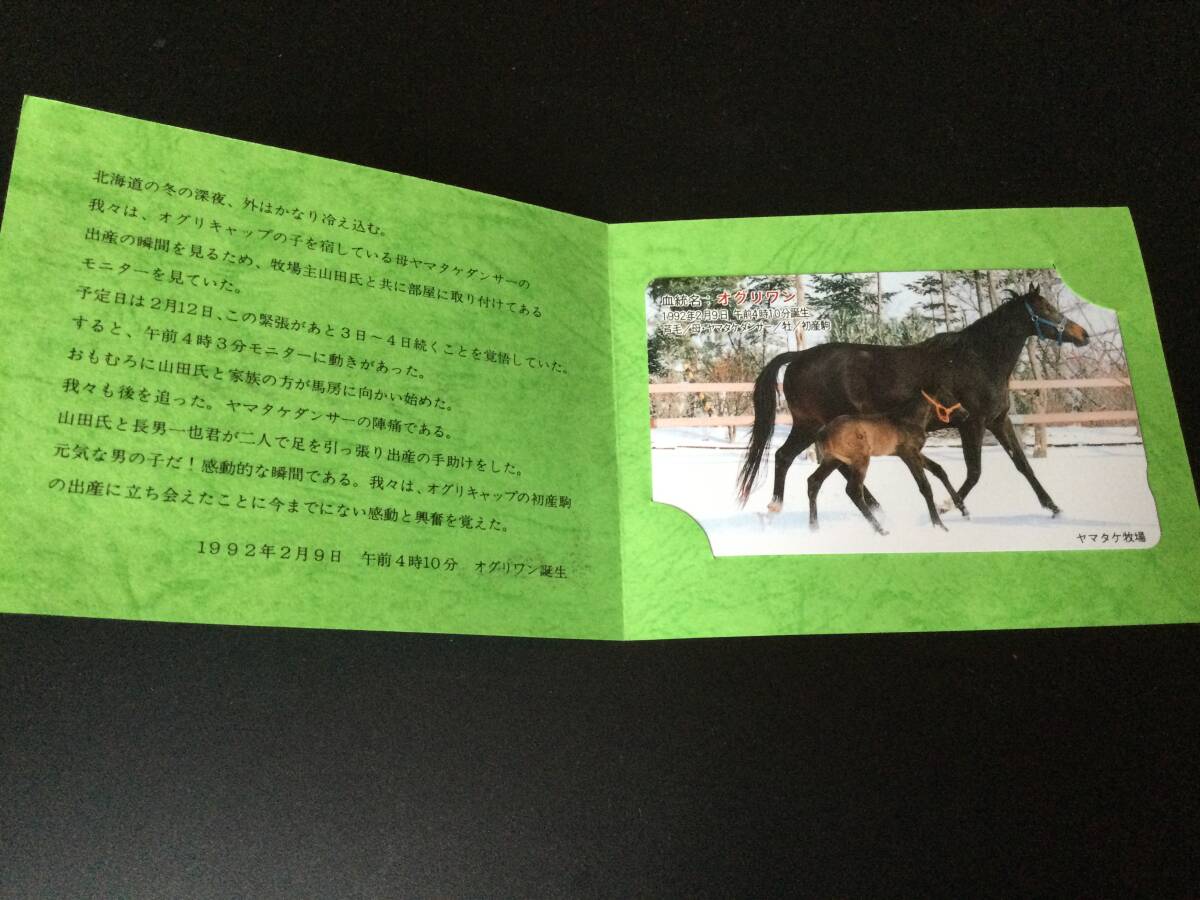 北海道の冬の深夜、外はかなり冷え込む。
我々は、オグリキャップの子を宿している母ヤマタケダンサーの
出産の瞬間を見るため、牧場主山田氏と共に部屋に取り付けてある
モニターを見ていた。
予定日は2月12日、この緊張があと3日~4日続くことを覚悟していた。
すると、午前4時3分モニターに動きがあった。
おもむろに山田氏と家族の方が馬房に向かい始めた。
我々も後を追った。ヤマタケダンサーの陣痛である。
山田氏と長男一也君が二人で足を引っ張り出産の手助けをした。
元気な男の子だ!感動的な瞬間である。我々は、オグリキャップの初産駒
の出産に立ち会えたことに今までにない感動と興奮を覚えた。
1992年2月9日 午前4時10分 オグリワン誕生
血統名:オグリワン
1992年2月9日 午前4時10分誕生
芦毛/母・ヤマタケダンサー/牡/初産駒
ヤマタケ牧場